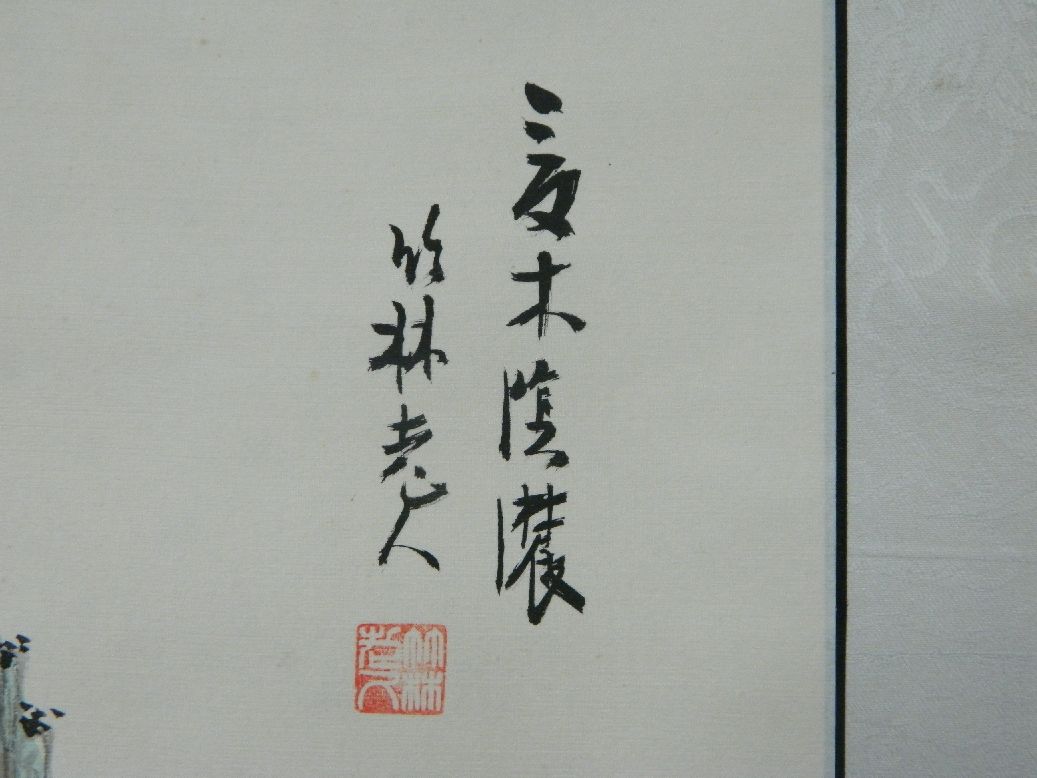 夏木陰濃
竹林老人
竹林
老人